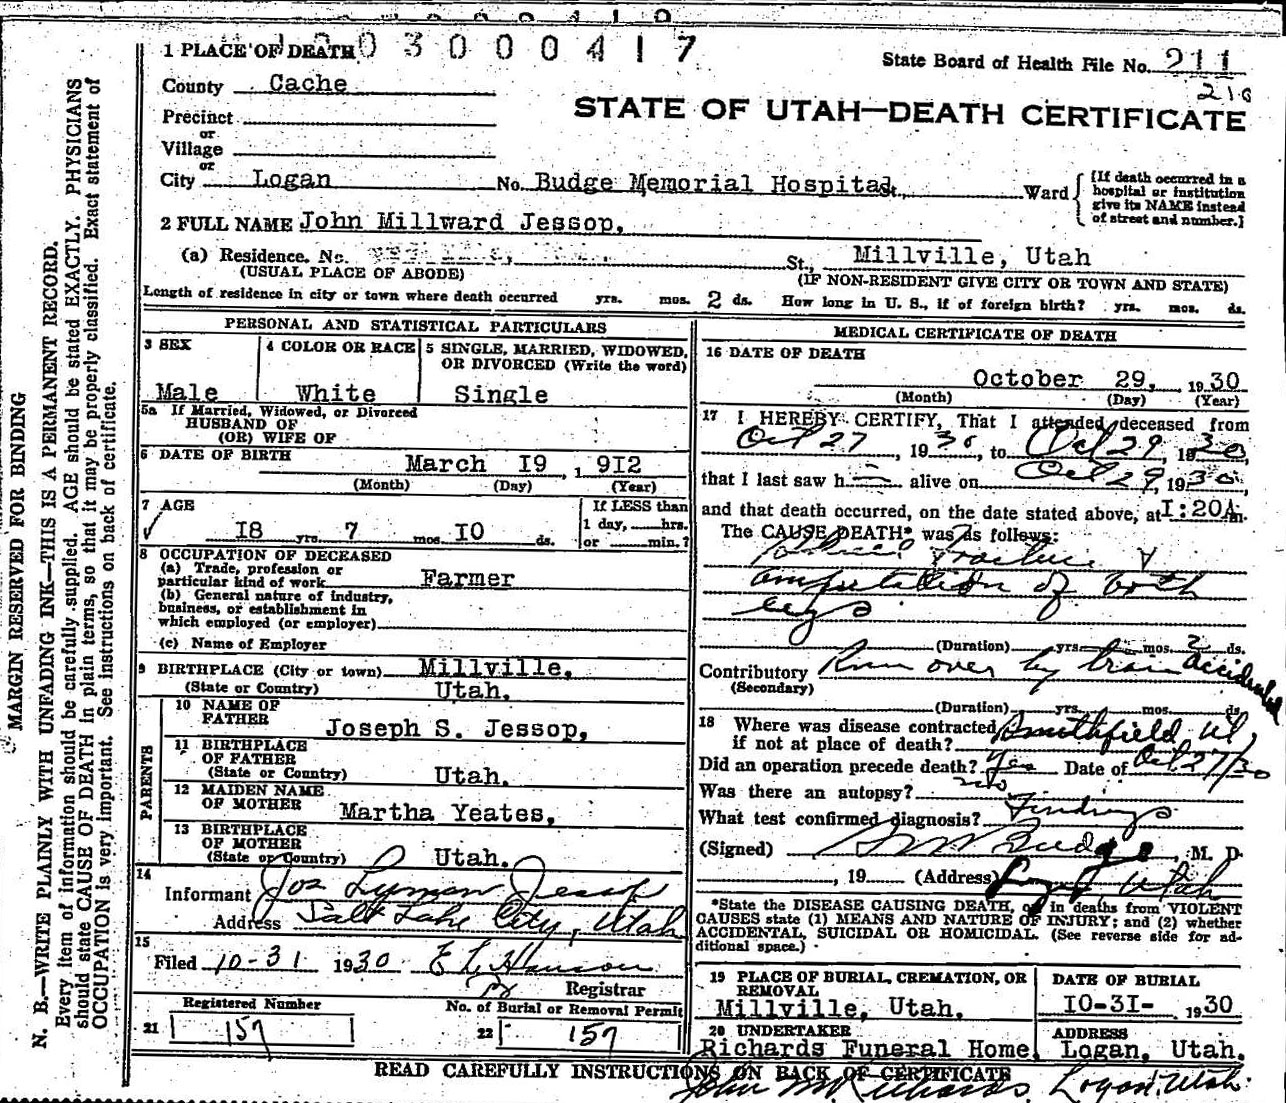 1 PLACE OF DEATH 03000417
State Board of Health File No. 211
210
County Cache
STATE OF UTAH—DEATH CERTIFICATE
Precinct
or
Village
or
City Logan No. Budge Memorial Hospital St., Ward
{If death occurred in a hospital or institution give its NAME instead of street and number.}
2 FULL NAME John Millward Jessop,
(a) Residence. No. St., Millville, Utah
(USUAL PLACE OF ABODE) (IF NON-RESIDENT GIVE CITY OR TOWN AND STATE)
Length of residence in city or town where death occurred yrs. mos. 2 ds. How long in U. S., if of foreign birth? yrs. mos. ds.
PERSONAL AND STATISTICAL PARTICULARS
3 SEX
Male
4 COLOR OR RACE
White
5 SINGLE, MARRIED, WIDOWED, OR DIVORCED (Write the word)
Single
5a If Married, Widowed, or Divorced
HUSBAND OF
(OR) WIFE OF
6 DATE OF BIRTH
March 19, 912
(Month) (Day) (Year)
7 AGE
18 yrs. 7 mos. 10 ds.
If LESS than
1 day, hrs.
or min.?
8 OCCUPATION OF DECEASED
(a) Trade, profession or
particular kind of work Farmer
(b) General nature of industry,
business, or establishment in
which employed (or employer)
(c) Name of Employer
9 BIRTHPLACE (City or town) Millville,
(State or Country) Utah.
PARENTS
10 NAME OF
FATHER Joseph S. Jessop,
11 BIRTHPLACE
OF FATHER
(State or Country) Utah.
12 MAIDEN NAME
OF MOTHER Martha Yeates,
13 BIRTHPLACE
OF MOTHER
(State or Country) Utah.
14
Informant Jos Lyman Jessop
Address Salt Lake City, Utah
15
Filed 10-31 1930 Registrar
Registered Number
21 157
No. of Burial or Removal Permit
22 157
MEDICAL CERTIFICATE OF DEATH
16 DATE OF DEATH
October 29, 1930
(Month) (Day) (Year)
17 I HEREBY CERTIFY, That I attended deceased from
Oct 27, 1930, to Oct 29, 1930,
that I last saw h alive on Oct 29, 1930,
and that death occurred, on the date stated above, at 1:20A m.
The CAUSE DEATH* was as follows:
Fracture
amputation of both
legs
(Duration) yrs. mos. 2 ds.
Contributory Run over by train accidental
(Secondary)
(Duration) yrs. mos. ds.
18 Where was disease contracted
if not at place of death? Smithfield, Ut,
Did an operation precede death? Yes Date of Oct 27/30
Was there an autopsy? no
What test confirmed diagnosis? Findings
(Signed) Budge, M. D.
, 19 (Address) Logan Utah
*State the DISEASE CAUSING DEATH, or in deaths from VIOLENT
CAUSES state (1) MEANS AND NATURE OF INJURY; and (2) whether
ACCIDENTAL, SUICIDAL OR HOMICIDAL. (See reverse side for ad-
ditional space.)
19 PLACE OF BURIAL, CREMATION, OR
REMOVAL
Millville, Utah.
DATE OF BURIAL
10-31- 1930
20 UNDERTAKER
Richards Funeral Home,
ADDRESS
Logan, Utah.
READ CAREFULLY INSTRUCTIONS ON BACK OF CERTIFICATE
John M Richards, Logan, Utah.
MARGIN RESERVED FOR BINDING
N. B.—WRITE PLAINLY WITH UNFADING INK—THIS IS A PERMANENT RECORD.
Every item of information should be carefully supplied. AGE should be stated EXACTLY. PHYSICIANS
should state CAUSE OF DEATH in plain terms, so that it may be properly classified. Exact statement of
OCCUPATION is very important. See instructions on back of certificate.